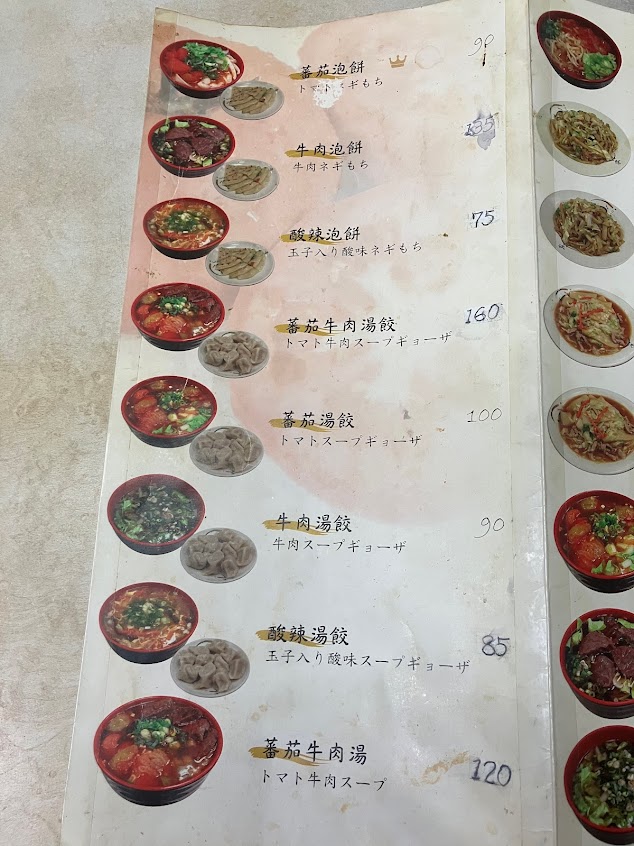 蕃茄泡餅 90
トマトネギもち
牛肉泡餅 135
牛肉ネギもち
酸辣泡餅 75
玉子入り酸味ネギもち
蕃茄牛肉湯餃 160
トマト牛肉スープギョーザ
蕃茄湯餃 100
トマトスープギョーザ
牛肉湯餃 90
牛肉スープギョーザ
酸辣湯餃 85
玉子入り酸味スープギョーザ
蕃茄牛肉湯 120
トマト牛肉スープ